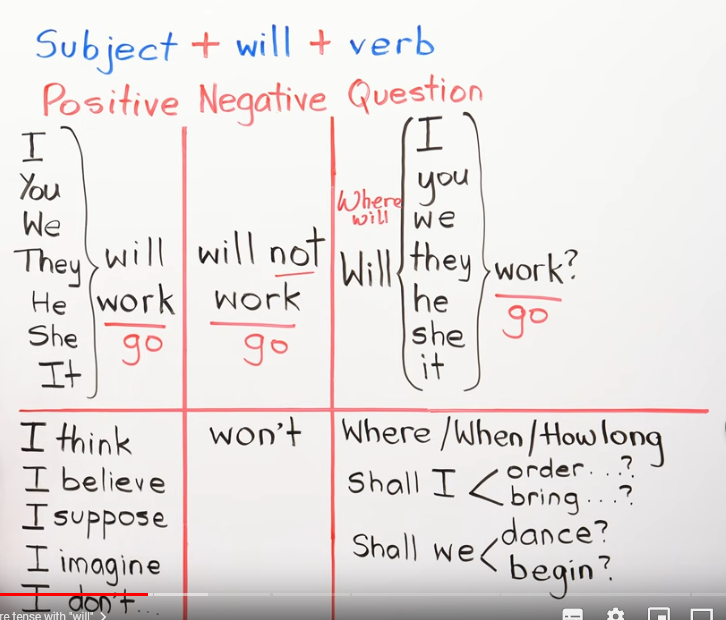 Subject + will + verb
Positive Negative Question
I
You
We
They
He
She
It
will
work
go
will not
work
go
Where
will
Will
I
you
we
they
he
she
it
work?
go
I think
I believe
I suppose
I imagine
I don't...
won't
Where /When/How long
Shall I
order...?
bring...?
Shall we
dance?
begin?
re tense with "will" >